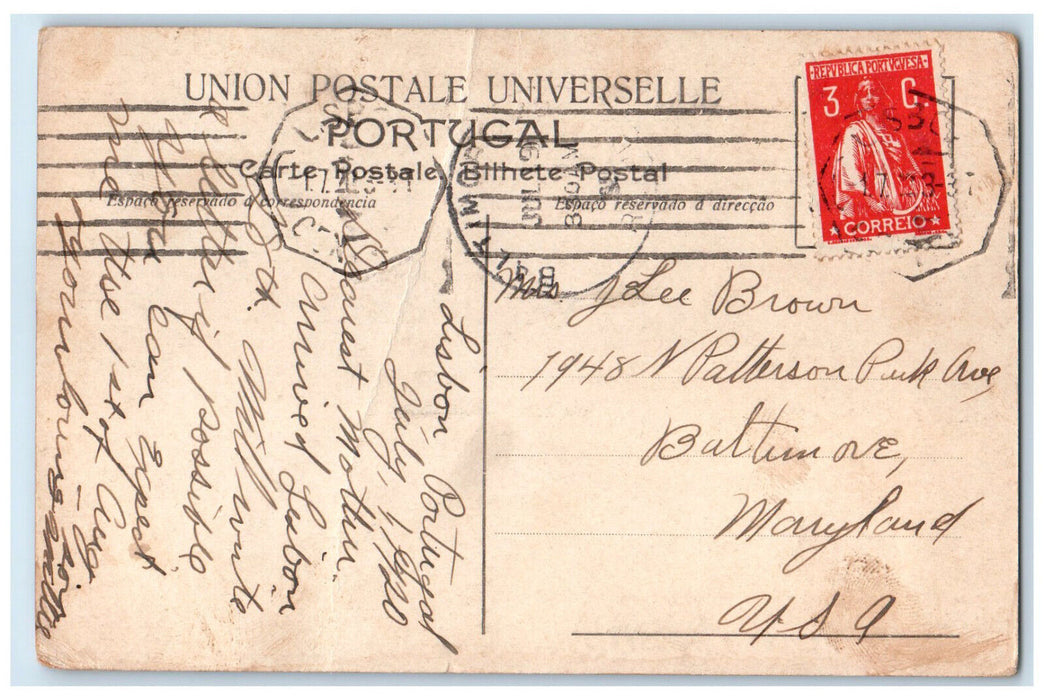 UNION POSTALE UNIVERSELLE
PORTUGAL
Carte Postale. Bilhete Postal
Espaço reservado á correspondencia
Espaço reservado á direcção
REPUBLICA PORTUGUESA
3 C.
CORREIO
Mrs J Lee Brown
1948 N Patterson Park Ave
Baltimore,
Maryland
U S A
Lisbon Portugal
July, 1, 1920
Dearest Mother
Arrived Lisbon
8th. Will write
a letter if possible
before
can expect
me the 1st of Aug.
Your loving